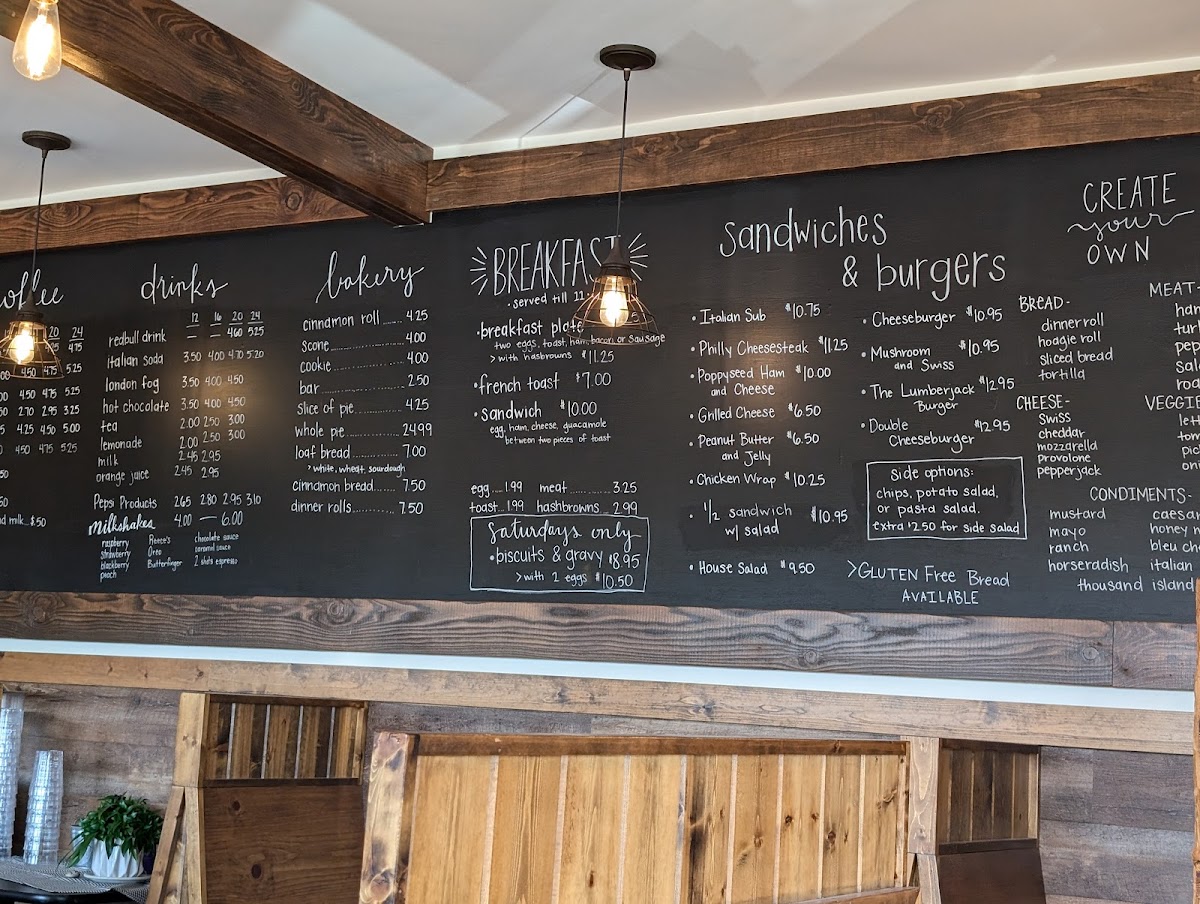 20 24
4.75 5.25
4.50 4.75 5.25
4.50 4.75 5.25
2.70 2.95 3.25
4.25 4.50 5.00
4.50 4.75 5.25
milk...$.50
drinks
12 16 20 24
redbull drink — — 4.60 5.25
italian soda 3.50 4.00 4.70 5.20
london fog 3.50 4.00 4.50
hot chocolate 3.50 4.00 4.50
tea 2.00 2.50 3.00
lemonade 2.00 2.50 3.00
milk 2.45 2.95
orange juice 2.45 2.95
Pepsi Products 2.65 2.80 2.95 3.10
milkshakes 4.00 — 6.00
raspberry Reese's chocolate sauce
strawberry Oreo caramel sauce
blackberry Butterfinger 2 shots espresso
peach
bakery
cinnamon roll........4.25
scone........4.00
cookie........4.00
bar........2.50
slice of pie........4.25
whole pie........24.99
loaf bread........7.00
> white, wheat, sourdough
cinnamon bread........7.50
dinner rolls........7.50
BREAKFAST
• served till 11
• breakfast plate
two eggs, toast, ham, bacon or sausage
> with hasbrowns $11.25
• french toast $7.00
• sandwich $10.00
egg, ham, cheese, guacamole
between two pieces of toast
egg....1.99 meat........3.25
toast..1.99 hashbrowns..2.99
Saturdays only
• biscuits & gravy $8.95
> with 2 eggs $10.50
Sandwiches
& burgers
• Italian Sub $10.75
• Philly Cheesesteak $11.25
• Poppyseed Ham $10.00
and Cheese
• Grilled Cheese $6.50
• Peanut Butter $6.50
and Jelly
• Chicken Wrap $10.25
• 1/2 sandwich $10.95
w/ salad
• House Salad $9.50
• Cheeseburger $10.95
• Mushroom $10.95
and Swiss
• The Lumberjack $12.95
Burger
• Double $12.95
Cheeseburger
Side options:
chips, potato salad,
or pasta salad.
extra $2.50 for side salad
>GLUTEN Free Bread
AVAILABLE
CREATE
your
OWN
BREAD-
dinner roll
hoagie roll
sliced bread
tortilla
CHEESE-
Swiss
cheddar
mozzarella
provolone
pepperjack
MEAT-
VEGGIE
CONDIMENTS-
mustard
mayo
ranch
horseradish italian
thousand island